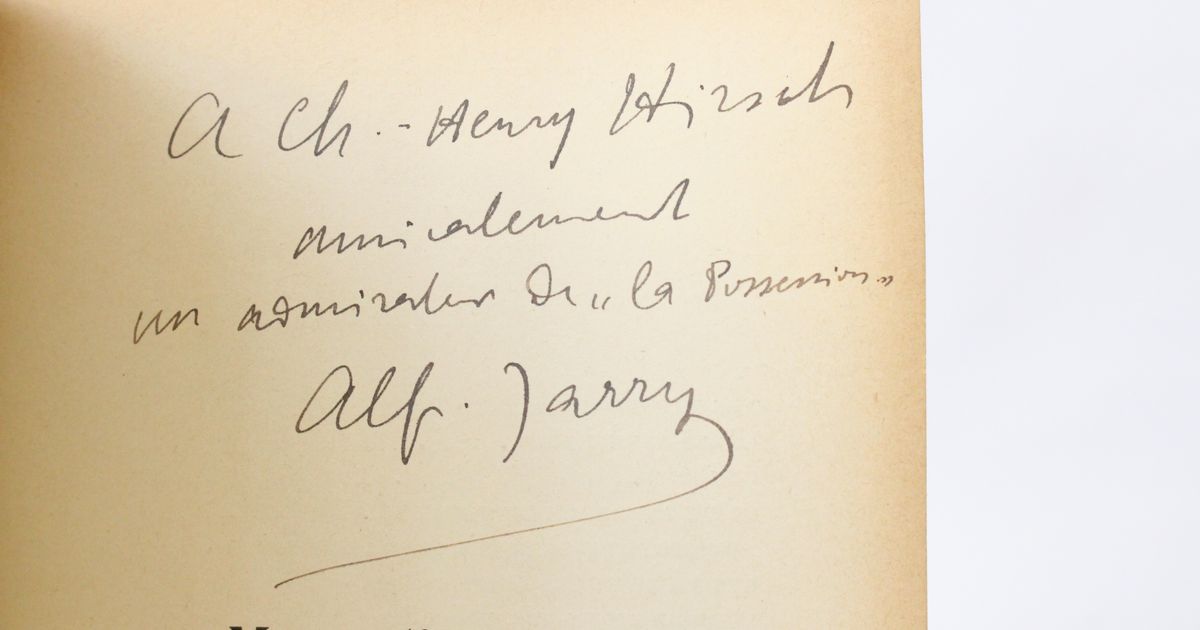 A Ch.-Henry Hirsch
amicalement
un admirateur de „la Possession„
Alf. Jarry